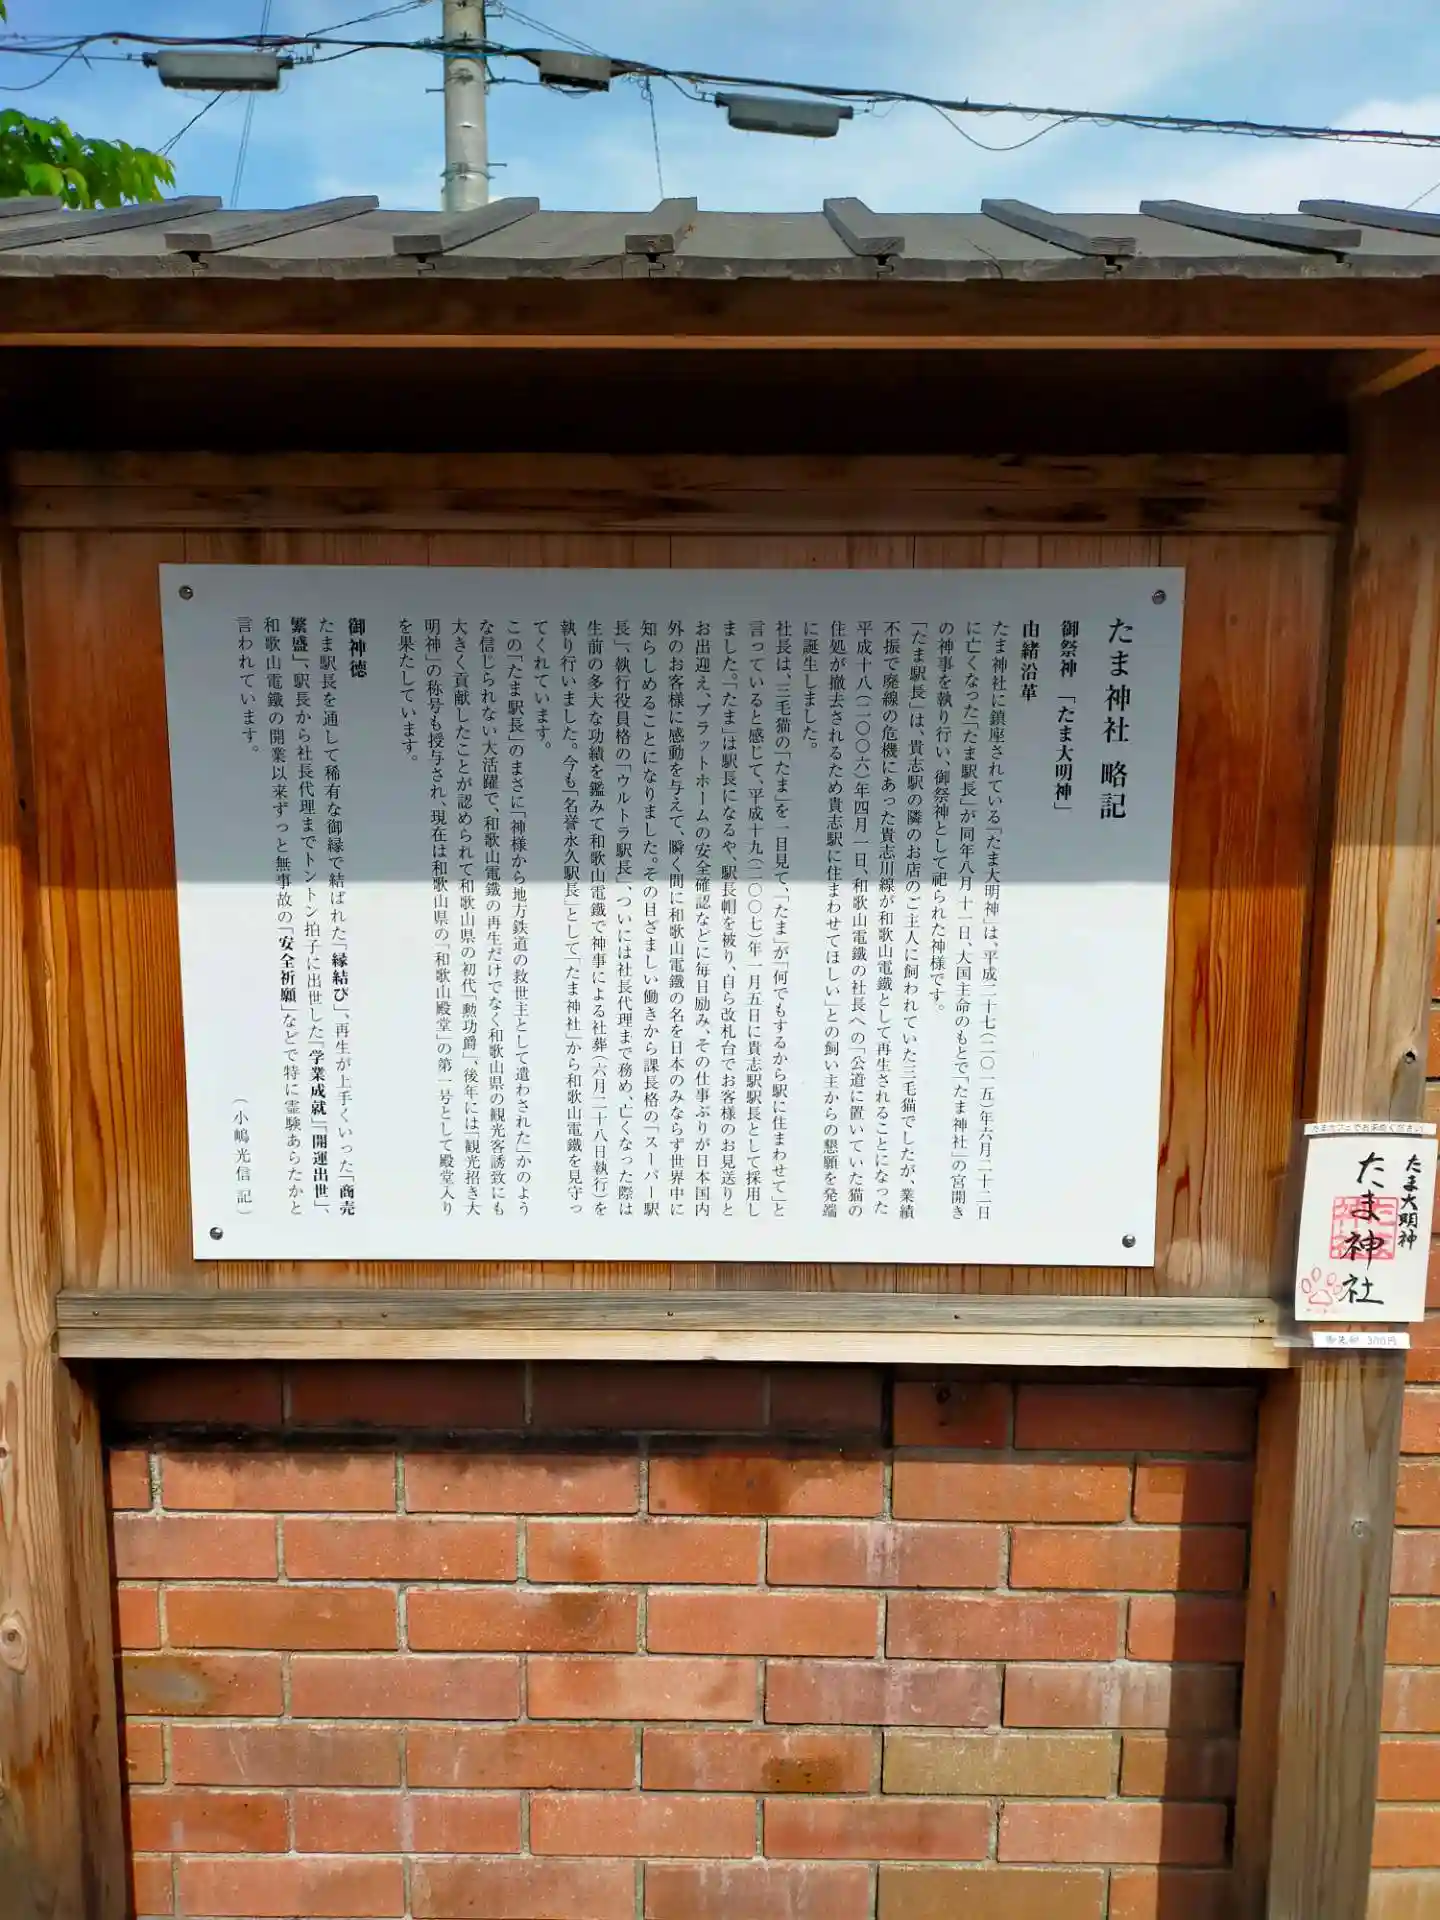 たま神社 略記
御祭神 「たま大明神」
由緒沿革
たま神社に鎮座されている「たま大明神」は、平成二十七(二〇一五)年六月二十二日
に亡くなった「たま駅長」が同年八月十一日、大国主命のもとで「たま神社」の宮開き
の神事を執り行い、御祭神として祀られた神様です。
「たま駅長」は、貴志駅の隣のお店のご主人に飼われていた三毛猫でしたが、業績
不振で廃線の危機にあった貴志川線が和歌山電鐵として再生されることになった
平成十八(二〇〇六)年四月一日、和歌山電鐵の社長への「公道に置いていた猫の
住処が撤去されるため貴志駅に住まわせてほしい」との飼い主からの懇願を発端
に誕生しました。
社長は、三毛猫の「たま」を一目見て、「たま」が「何でもするから駅に住まわせて」と
言っていると感じて、平成十九(二〇〇七)年一月五日に貴志駅駅長として採用し
ました。「たま」は駅長になるや、駅長帽を被り、自ら改札台でお客様のお見送りと
お出迎え、プラットホームの安全確認などに毎日励み、その仕事ぶりが日本国内
外のお客様に感動を与えて、瞬く間に和歌山電鐵の名を日本のみならず世界中に
知らしめることになりました。その目ざましい働きから課長格の「スーパー駅
長」、執行役員格の「ウルトラ駅長」、ついには社長代理まで務め、亡くなった際は
生前の多大な功績を鑑みて和歌山電鐵で神事による社葬(六月二十八日執行)を
執り行いました。今も「名誉永久駅長」として「たま神社」から和歌山電鐵を見守っ
てくれています。
この「たま駅長」のまさに「神様から地方鉄道の救世主として遣わされた」かのよう
な信じられない大活躍で、和歌山電鐵の再生だけでなく和歌山県の観光客誘致にも
大きく貢献したことが認められて和歌山県の初代「勲功爵」、後年には「観光招き大
明神」の称号も授与され、現在は和歌山県の「和歌山殿堂」の第一号として殿堂入り
を果たしています。
御神徳
たま駅長を通して稀有な御縁で結ばれた「縁結び」、再生が上手くいった「商売
繁盛」、駅長から社長代理までトントン拍子に出世した「学業成就」「開運出世」、
和歌山電鐵の開業以来ずっと無事故の「安全祈願」などで特に霊験あらたかと
言われています。
(小嶋光信 記)
たまカフェでお求めください
たま大明神
たま神社
御朱印 300円